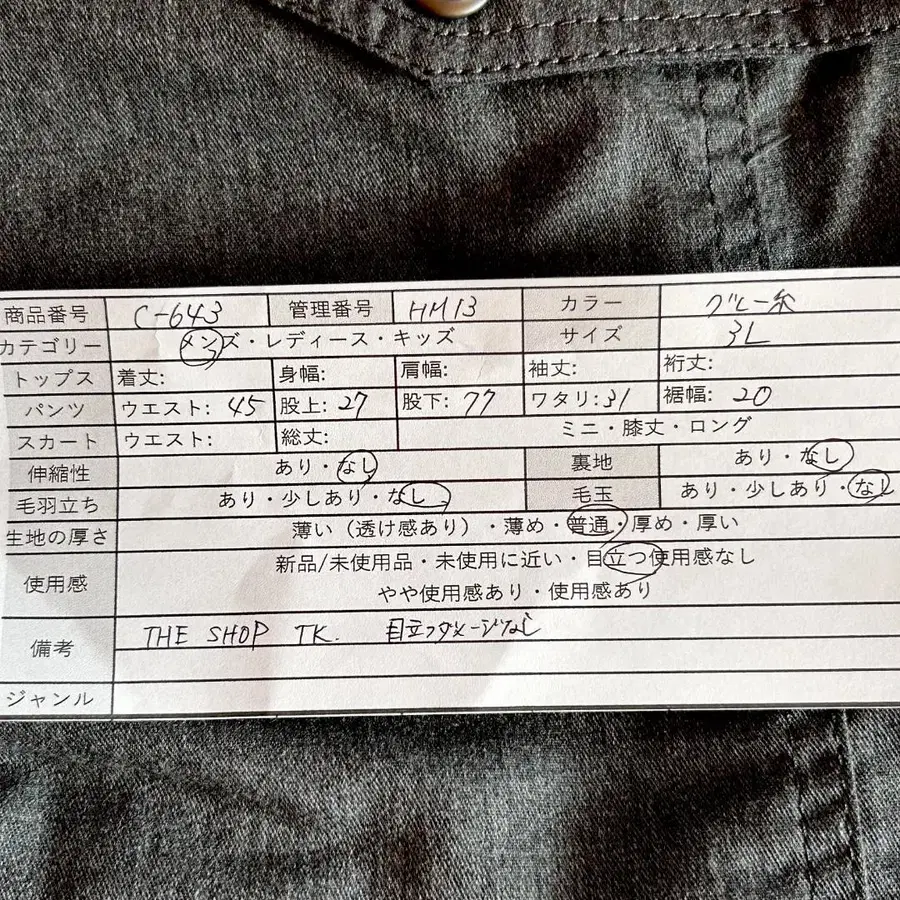 商品番号 C-643 管理番号 HM13 カラー グレー系
カテゴリー メンズ・レディース・キッズ サイズ 3L
トップス 着丈: 身幅: 肩幅: 袖丈: 裄丈:
パンツ ウエスト: 45 股上: 27 股下: 77 ワタリ: 31 裾幅: 20
スカート ウエスト: 総丈: ミニ・膝丈・ロング
伸縮性 あり・なし 裏地 あり・なし
毛羽立ち あり・少しあり・なし 毛玉 あり・少しあり・なし
生地の厚さ 薄い（透け感あり）・薄め・普通・厚め・厚い
使用感 新品/未使用品・未使用に近い・目立つ使用感なし
やや使用感あり・使用感あり
備考 THE SHOP TK. 目立つダメージなし
ジャンル